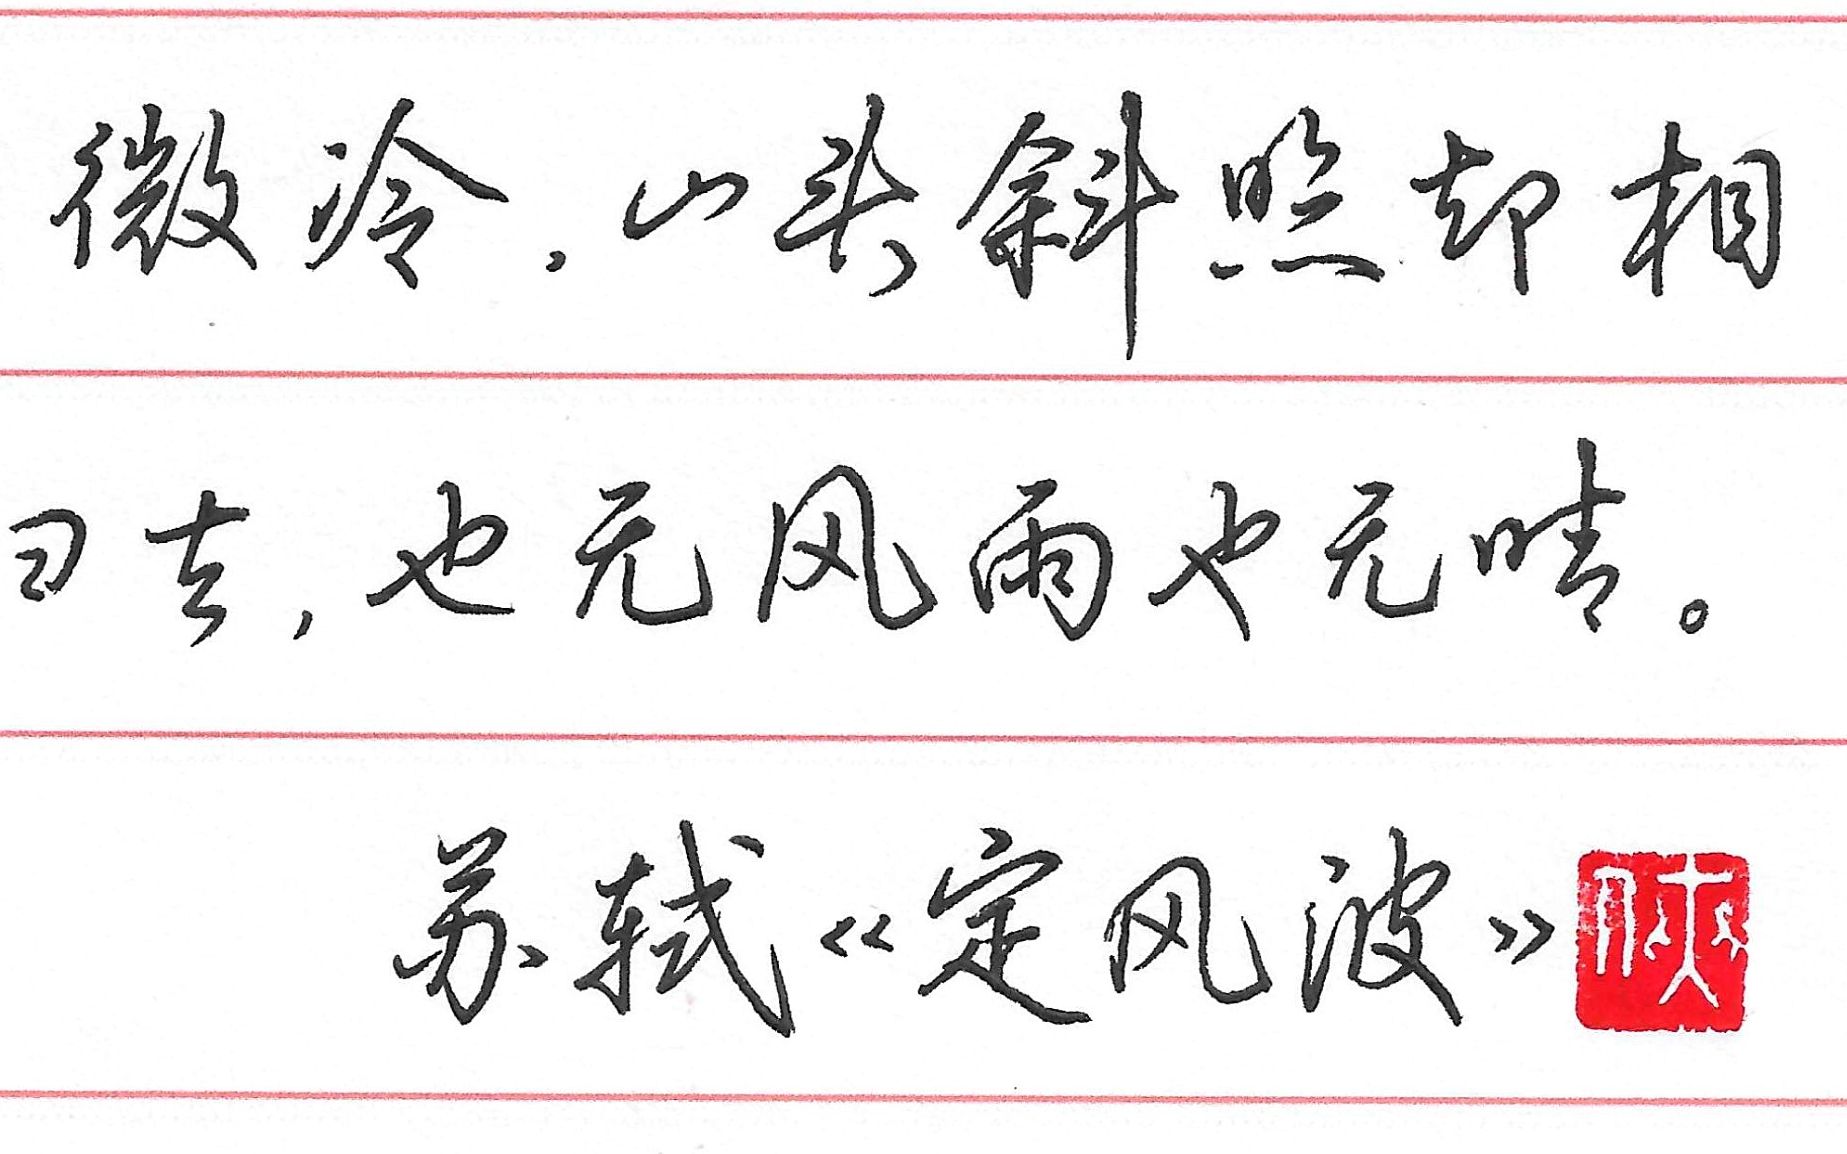 微冷，山头斜照却相
去，也无风雨也无晴。
苏轼《定风波》